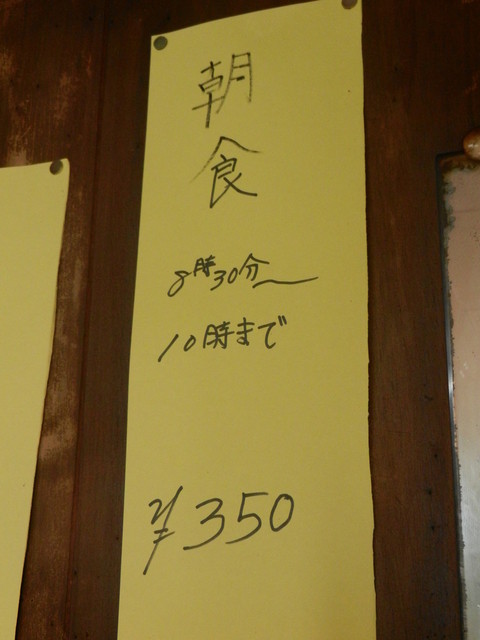 朝食
8時30分〜
10時まで
¥350